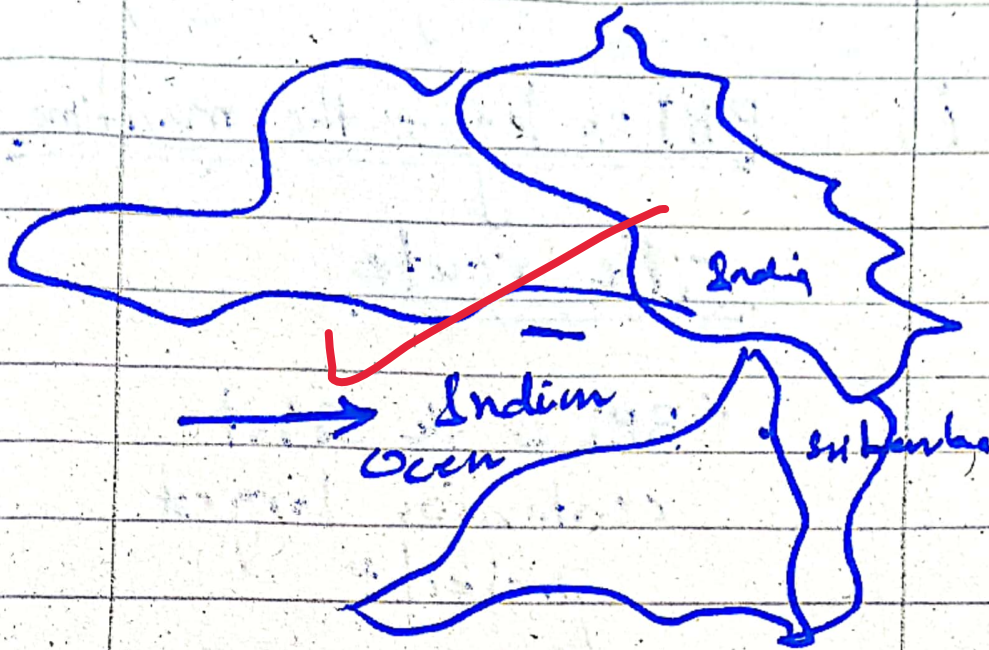 India
Indian
Ocen
Srilanka